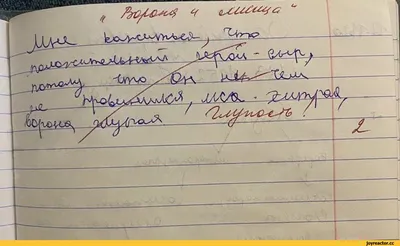 " Ворона и лисица"
Мне кажиться, что
положительный герой-сыр,
потому что он не чем
не провинился, лиса-хитрая,
ворона глупая
Глупость!
2
joyreactor.cc